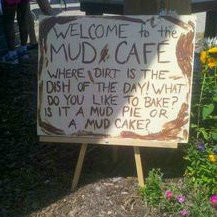 WELCOME to the
MUD CAFE
WHERE DIRT IS THE
DISH OF THE DAY! WHAT
DO YOU LIKE TO BAKE?
IS IT A MUD PIE OR
A MUD CAKE?